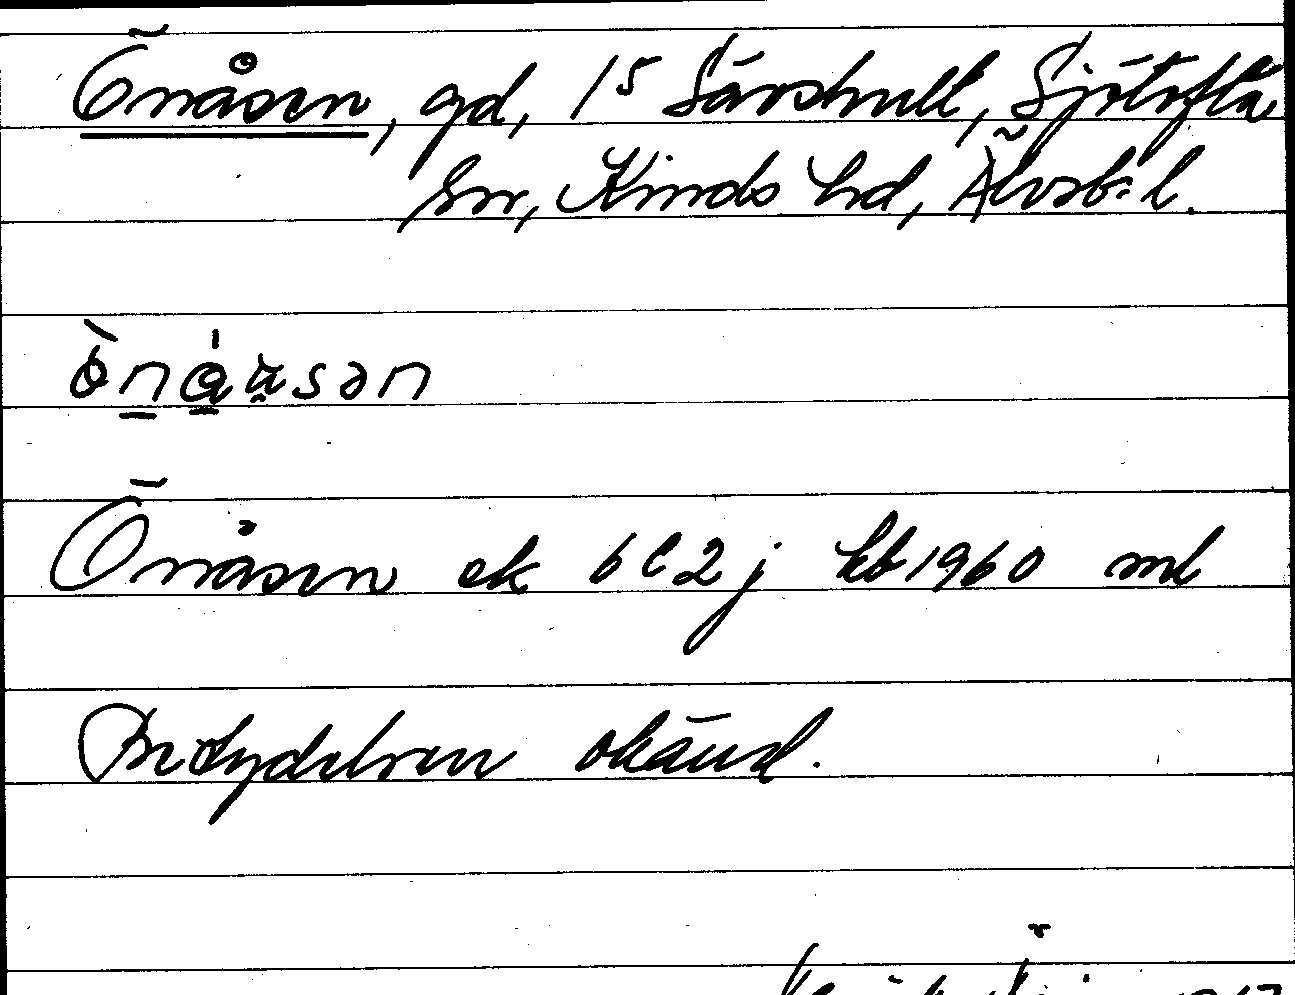 Önåsen, gd, 15 Särshult, Sjötofta
sn, Kinds hd, Älvsb. l.
Önåsen ek 6C2j kb 1960 ml
Betydelsen okänd.